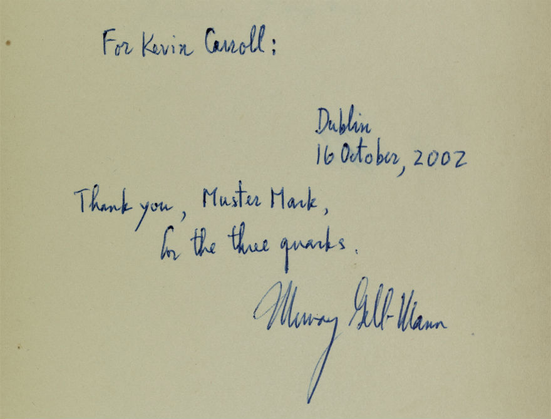 For Kevin Carroll;
Dublin
16 October, 2002
Thank you, Muster Mark,
for the three quarks.
Murray Gell-Mann